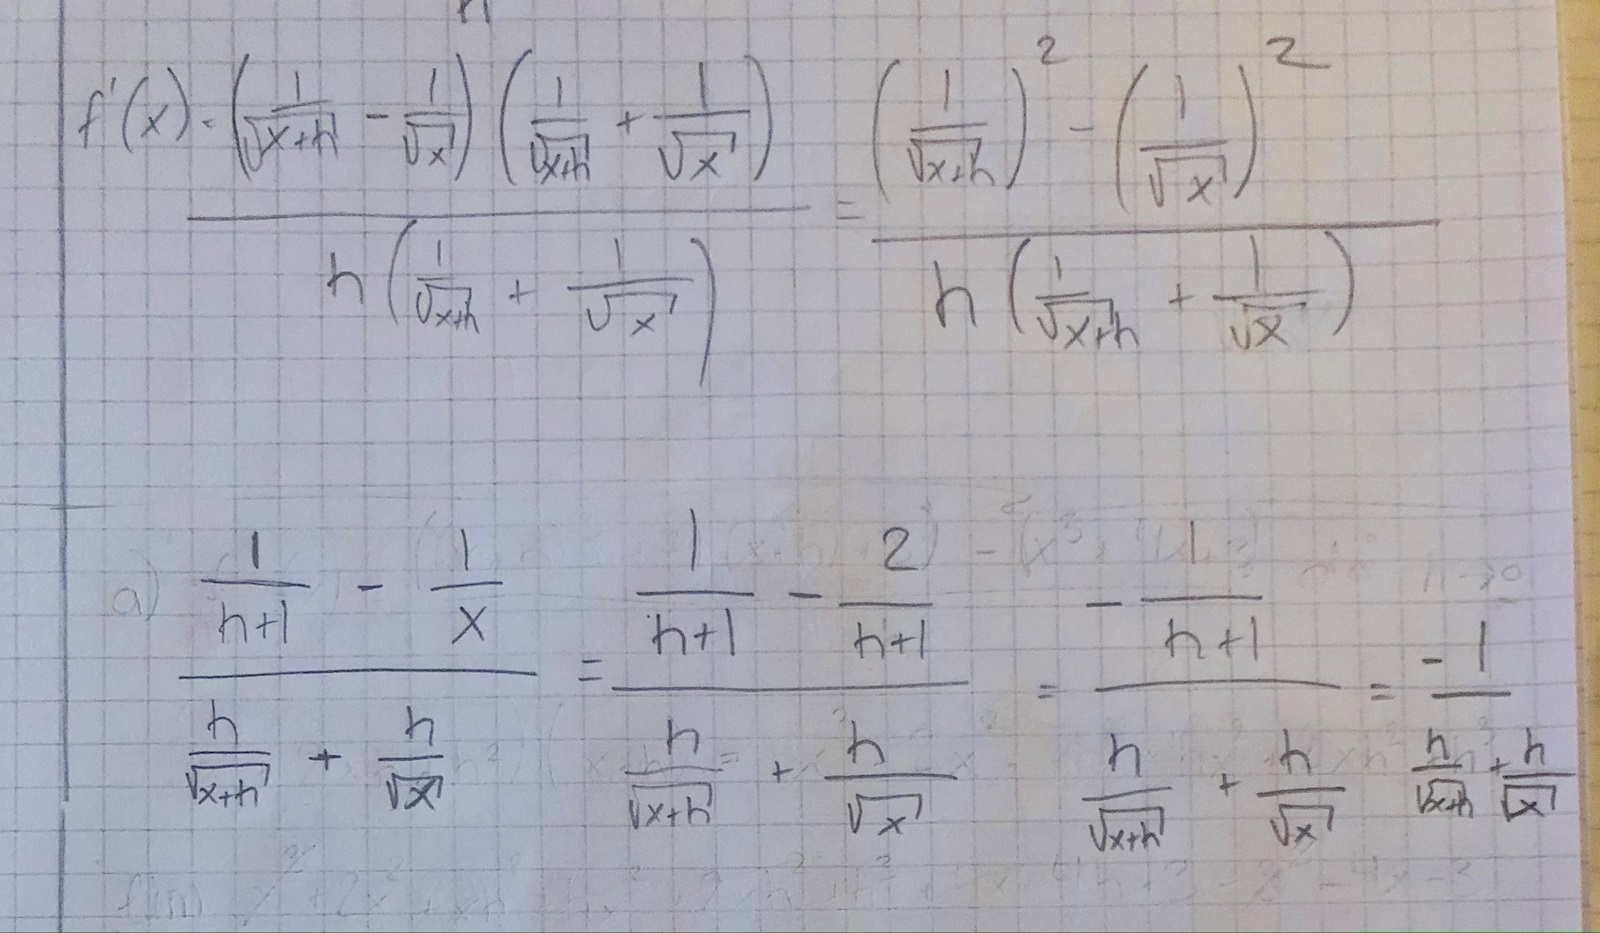 f'(x) = ((1/√(x+h) - 1/√x)(1/√(x+h) + 1/√x)) / (h(1/√(x+h) + 1/√x)) = ((1/√(x+h))² - (1/√x)²) / (h(1/√(x+h) + 1/√x))
a) (1/(h+1) - 1/x) / (h/√(x+h) + h/√x) = (1/(h+1) - 2/(h+1)) / (h/√(x+h) + h/√x) = (-1/(h+1)) / (h/√(x+h) + h/√x) = -1 / (h/√(x+h) + h/√x)